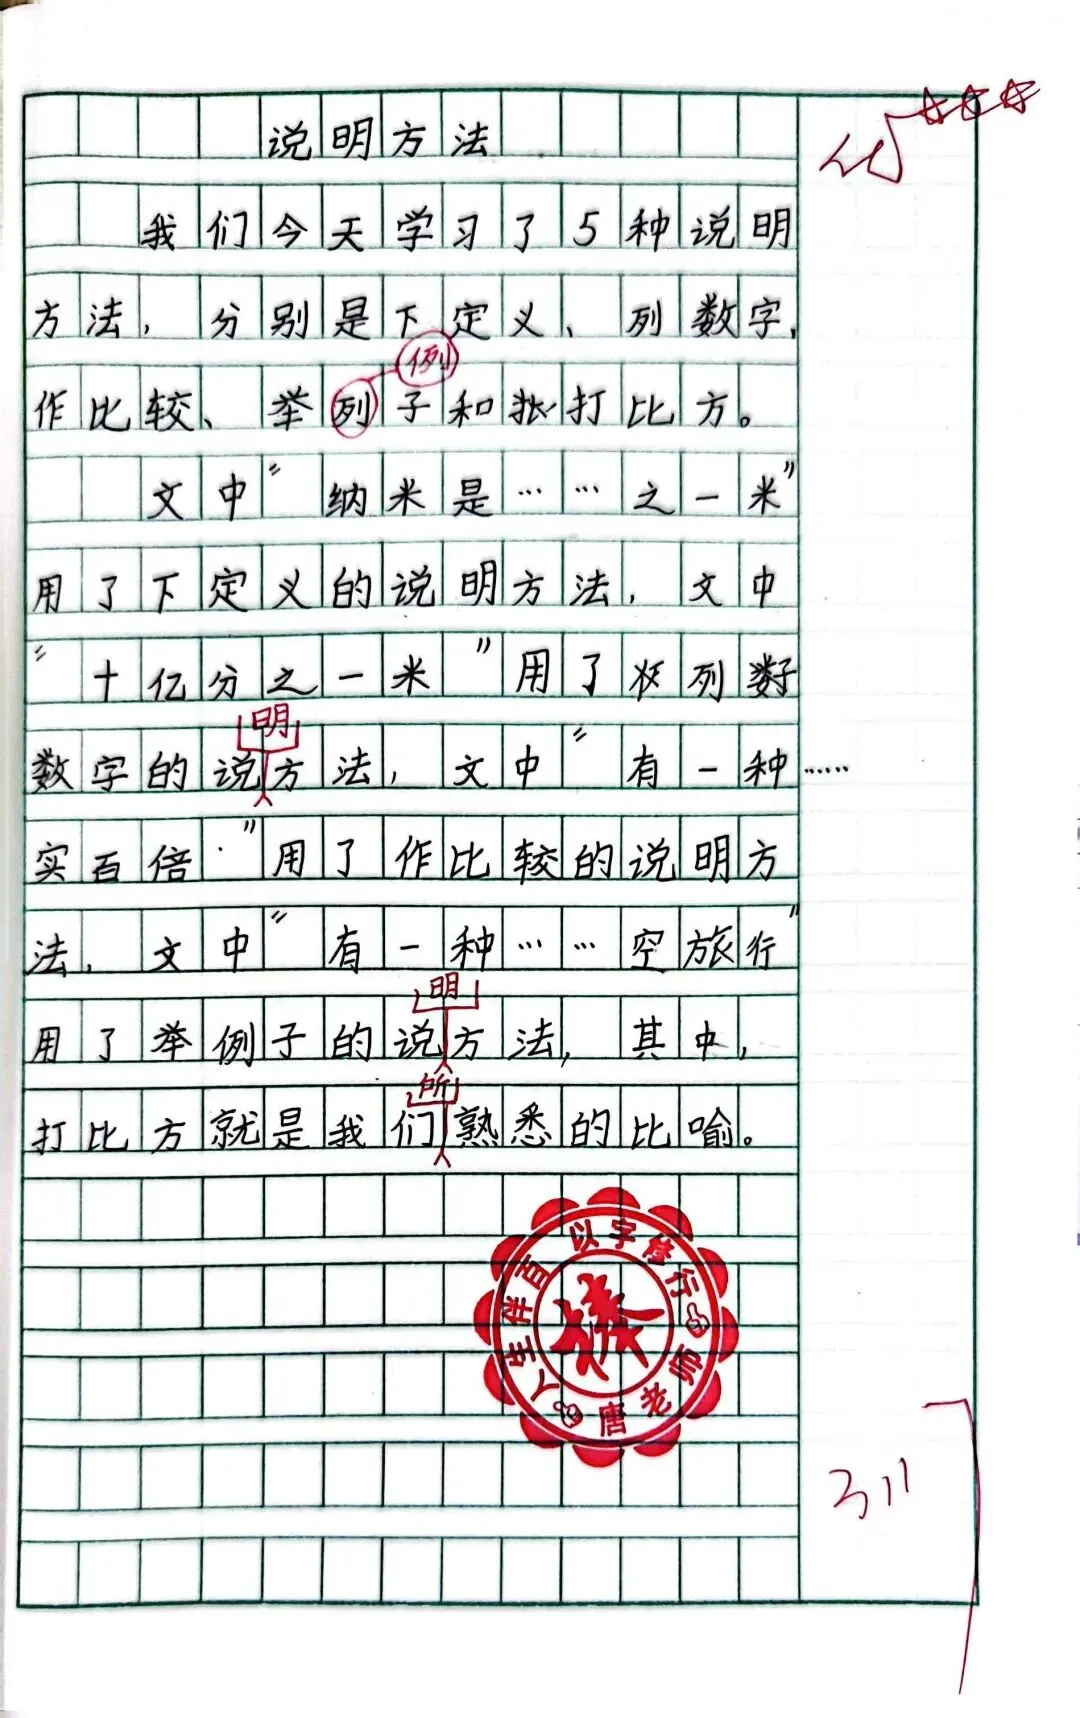 说明方法
我们今天学习了5种说明
方法，分别是下定义、列数字、
例
作比较、举列子和打比方。
文中“纳米是……之一米”
用了下定义的说明方法，文中
“十亿分之一米”用了列
明
数字的说方法，文中“有一种……
实百倍”用了作比较的说明方
法，文中“有一种……空旅行”
明
用了举例子的说方法，其中，
所
打比方就是我们熟悉的比喻。
人生伴直 以字修行
棒
唐老师
311